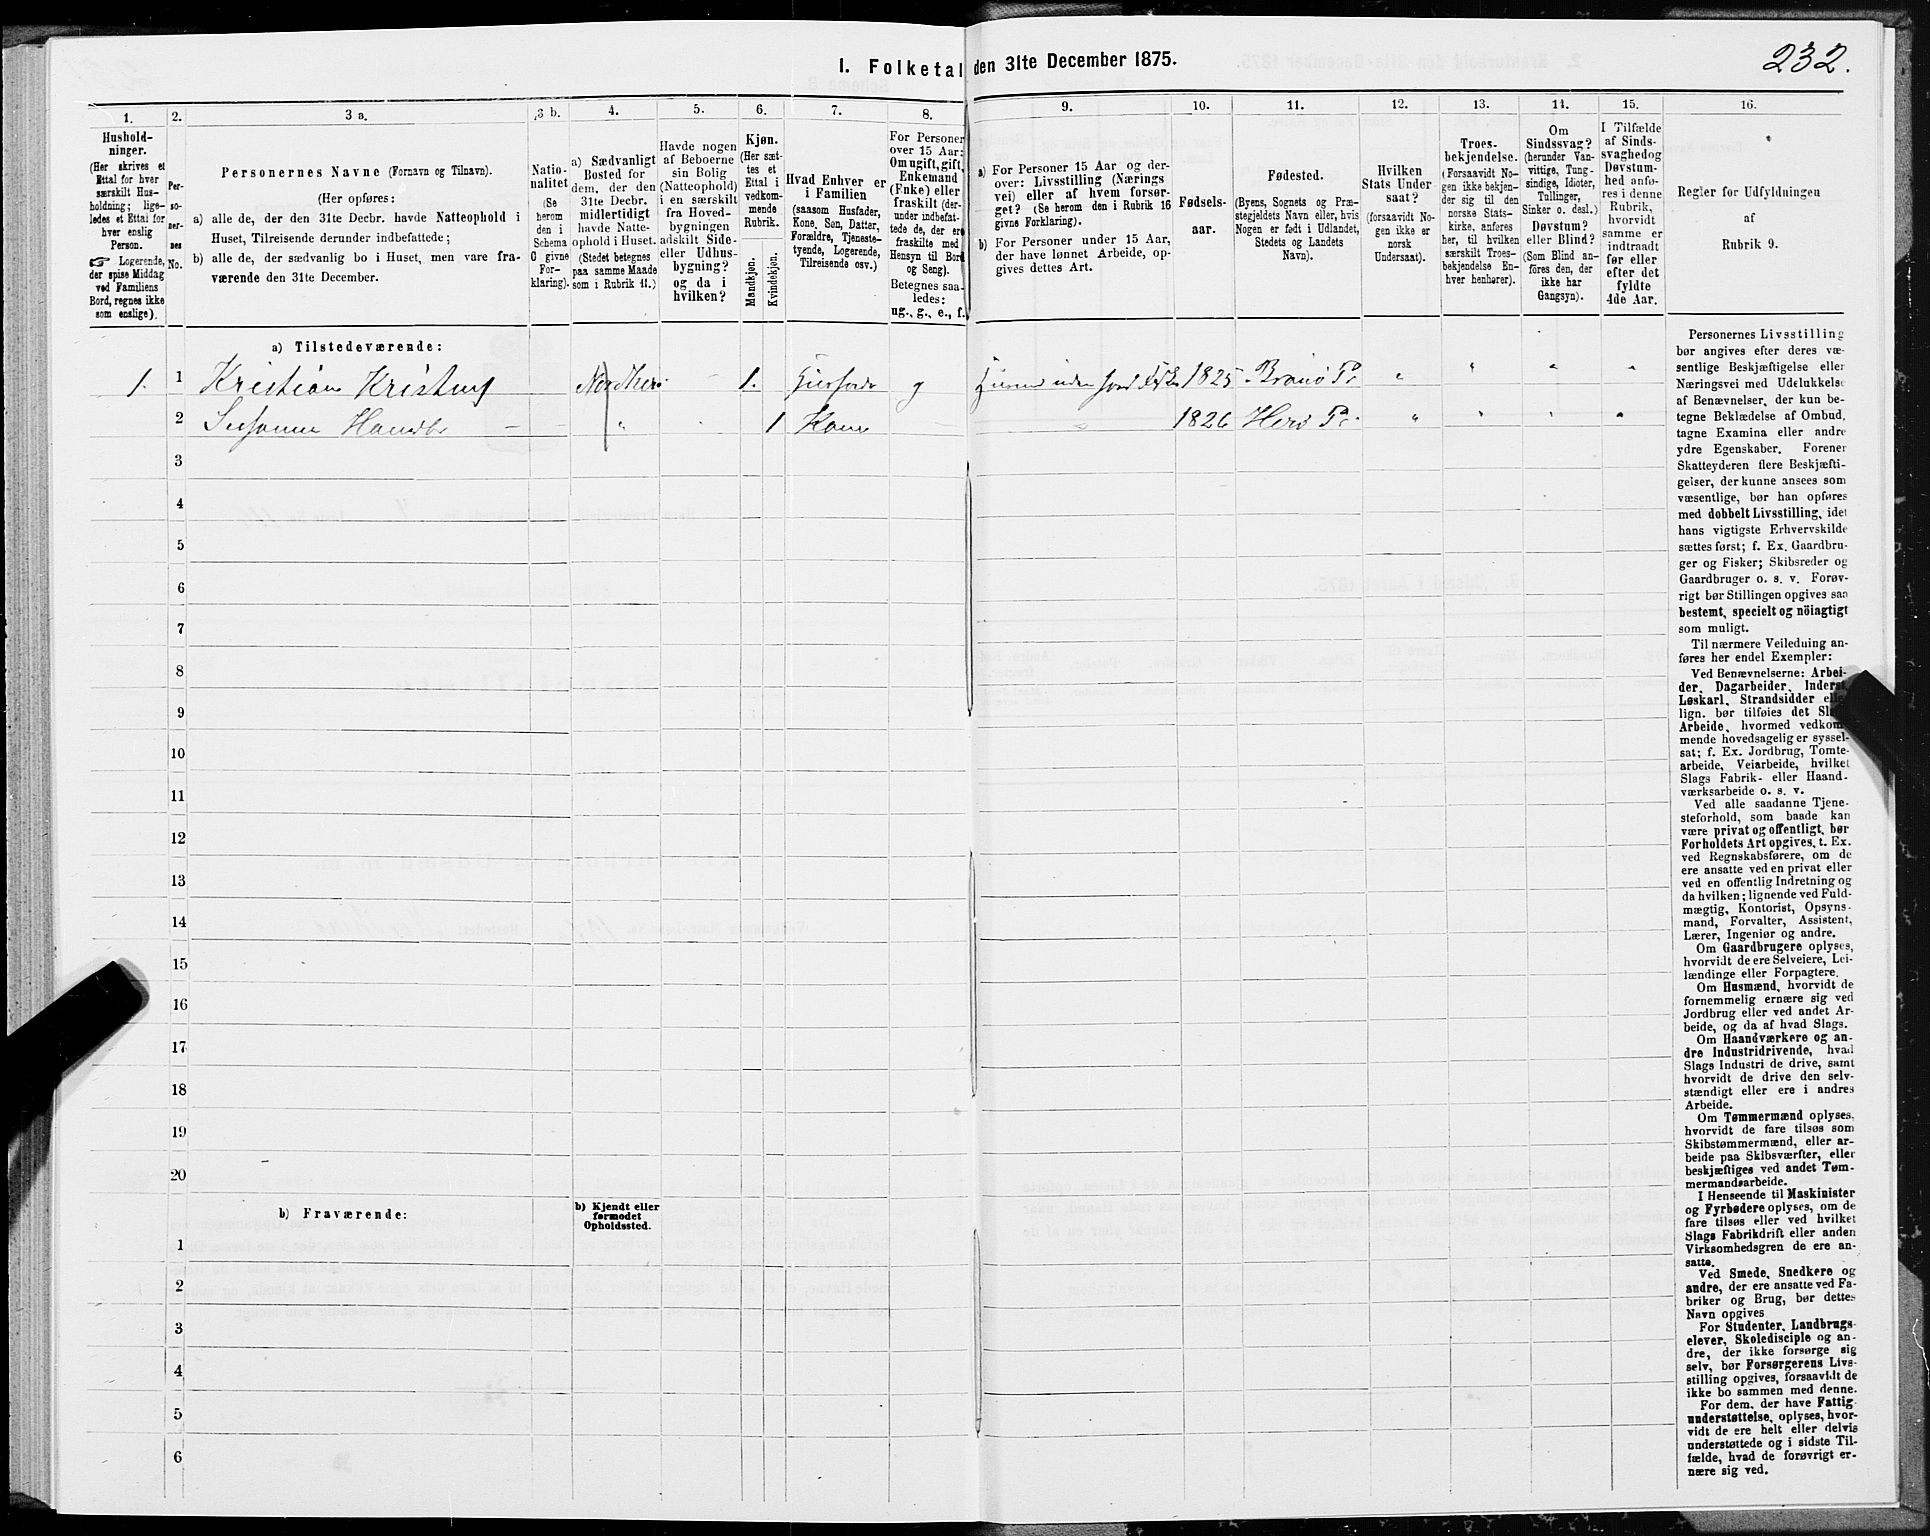 I. Folketal den 31te December 1875.
232.
1.
2.
3 a.
3 b.
4.
5.
6.
7.
8.
9.
10.
11.
12.
13.
14.
15.
16.
Hushold-
ninger.
(Her skrives et
Ettal for hver
særskilt Hus-
holdning; lige-
ledes et Ettal for
hver enslig
Person.
☞ Logerende,
der spise Middag
ved Familiens
Bord, regnes ikke
som enslige).
Per-
so-
ner-
nes
No.
Personernes Navne (Fornavn og Tilnavn).
(Her opføres:
a) alle de, der den 31te Decbr. havde Natteophold i
Huset, Tilreisende derunder indbefattede;
b) alle de, der sædvanlig bo i Huset, men vare fra-
værende den 31te December.
Natio-
nalitet
(Se
herom
den i
Schema
O givne
For-
klaring).
a) Sædvanligt
Bosted for
dem, der den
31te Decbr.
midlertidigt
havde Natte-
ophold i Huset.
(Stedet betegnes
paa samme Maade
som i Rubrik 11.)
Havde nogen
af Beboerne
sin Bolig
(Natteophold)
i en særskilt
fra Hoved-
bygningen
adskilt Side-
eller Udhus-
bygning?
og da i
hvilken?
Kjøn.
(Her sæt-
tes et
Ettal i
vedkom-
mende
Rubrik.
Mandkjøn.
Kvindekjøn.
Hvad Enhver er
i Familien
(saasom Husfader,
Kone, Søn, Datter,
Forældre, Tjeneste-
tyende, Logerende,
Tilreisende osv.)
For Personer
over 15 Aar:
Om ugift, gift,
Enkemand
(Enke) eller
fraskilt (der-
under indbefat-
tede de, der ere
fraskilte med
Hensyn til Bord
og Seng).
Betegnes saa-
ledes:
ug., g., e., f.
a) For Personer 15 Aar og der-
over: Livsstilling (Nærings
vei) eller af hvem forsør-
get? (Se herom den i Rubrik 16
givne Forklaring).
b) For Personer under 15 Aar,
der have lønnet Arbeide, op-
gives dettes Art.
Fødsels-
aar.
Fødested.
(Byens, Sognets og Præ-
stegjeldets Navn eller, hvis
Nogen er født i Udlandet,
Stedets og Landets
Navn).
Hvilken
Stats Under-
saat?
(forsaavidt No-
gen ikke er
norsk
Undersaat).
Troes-
bekjendelse.
(Forsaavidt No-
gen ikke bekjen-
der sig til den
norske Stats-
kirke, anføres
her, til hvilken
særskilt Troes-
bekjendelse En-
hver henhører).
Om
Sindssvag?
(herunder Van-
vittige, Tung-
sindige, Idioter,
Tullinger,
Sinker o. desl.)
Døvstum?
eller Blind?
(Som Blind an-
føres den, der
ikke har
Gangsyn).
I Tilfælde
af Sinds-
svaghed og
Døvstum-
hed anfø-
res i denne
Rubrik,
hvorvidt
samme er
indtraadt
før eller
efter det
fyldte
4de Aar.
Regler for Udfyldningen
af
Rubrik 9.
a) Tilstedeværende:
1. 1 Kristian 1. g 1825
2 1 Kone 1826 Herø
3
4
5
6
7
8
9
10
11
12
13
14
15
16
17
18
19
20
b) Fraværende:
b) Kjendt eller
formodet
Opholdssted.
1
2
3
4
5
6
Personernes Livsstilling
bør angives efter deres væ-
sentlige Beskjæftigelse eller
Næringsvei med Udelukkelse
af Benævnelser, der kun be-
tegne Beklædelse af Ombud,
tagne Examina eller andre
ydre Egenskaber. Forener
Skatteyderen flere Beskjæfti-
gelser, der kunne ansees som
væsentlige, bør han opføres
med dobbelt Livsstilling, idet
hans vigtigste Erhvervskilde
sættes først; f. Ex. Gaardbru-
ger og Fisker; Skibsreder og
Gaardbruger o. s. v. Forøv-
rigt bør Stillingen opgives saa
bestemt, specielt og nöiagtigt
som muligt.
Til nærmere Veiledning an-
føres her endel Exempler:
Ved Benævnelserne: Arbei-
der, Dagarbeider, Inderst,
Løskarl, Strandsidder eller
lign. bør tilføies det Slags
Arbeide, hvormed vedkom-
mende hovedsagelig er syssel-
sat; f. Ex. Jordbrug, Tomte-
arbeide, Veiarbeide, hvilket
Slags Fabrik- eller Haand-
værksarbeide o. s. v.
Ved alle saadanne Tjene-
steforhold, som baade kan
være privat og offentligt, bør
Forholdets Art opgives, t. Ex.
ved Regnskabsførere, om de
ere ansatte ved en privat eller
ved en offentlig Indretning og
da hvilken; lignende ved Fuld-
mægtig, Kontorist, Opsyns-
mand, Forvalter, Assistent,
Lærer, Ingeniør og andre.
Om Gaardbrugere oplyses,
hvorvidt de ere Selveiere, Lei-
lændinge eller Forpagtere.
Om Husmænd, hvorvidt de
fornemmelig ernære sig ved
Jordbrug eller ved andet Ar-
beide, og da af hvad Slags.
Om Haandværkere og an-
dre Industridrivende, hvad
Slags Industri de drive, samt
hvorvidt de drive den selv-
stændigt eller ere i andres
Arbeide.
Om Tømmermænd oplyses,
hvorvidt de fare tilsøs som
Skibstømmermænd, eller ar-
beide paa Skibsværfter, eller
beskjæftiges ved andet Tøm-
mermandsarbeide.
I Henseende til Maskinister
og Fyrbødere oplyses, om de
fare tilsøs eller ved hvilket
Slags Fabrikdrift eller anden
Virksomhedsgren de ere an-
satte.
Ved Smede, Snedkere og
andre, der ere ansatte ved Fa-
briker og Brug, bør dettes
Navn opgives
For Studenter, Landbrugs-
elever, Skoledisciple og an-
dre, der ikke forsørge sig
selv, bør Forsørgerens Livs-
stilling opgives, forsaavidt de
ikke bo sammen med denne.
For dem, der have Fattig-
understøttelse, oplyses, hvor-
vidt de ere helt eller delvis
understøttede og i sidste Til-
fælde, hvad de forøvrigt er-
nære sig ved.